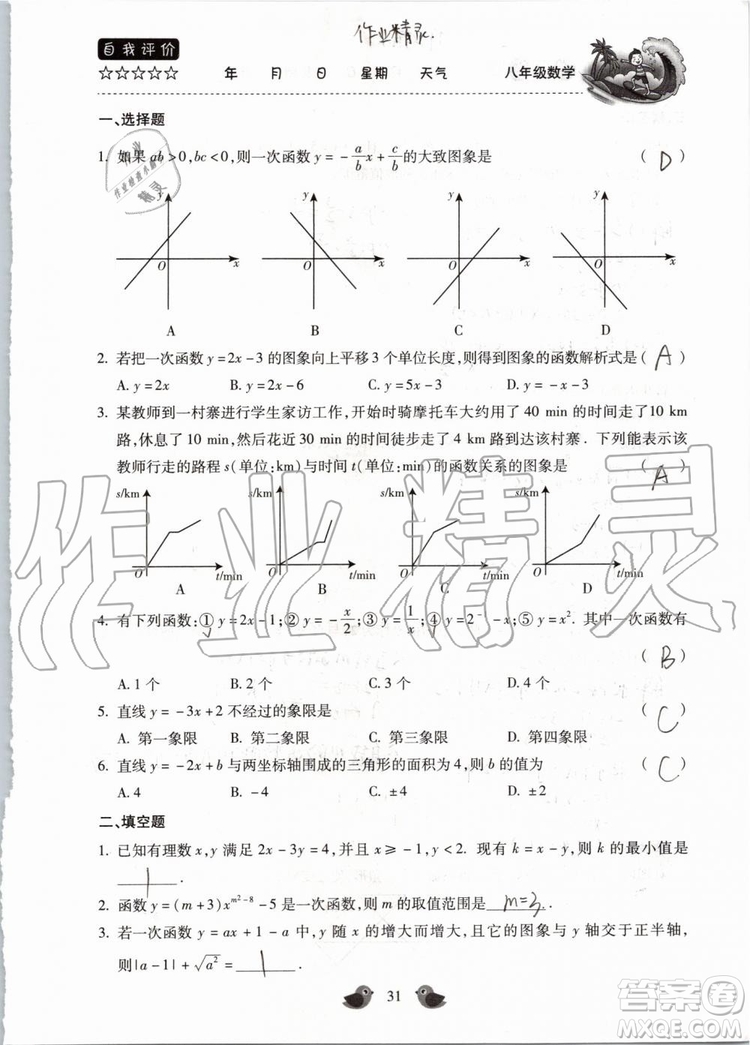 作业精灵.
自我评价
☆☆☆☆☆ 年 月 日 星期 天气 八年级数学
一、选择题
1. 如果 ab>0,bc<0,则一次函数 y=-\frac{a}{b}x+\frac{c}{b}的大致图象是 ( D )
y y y y
O x O x O x O x
A B C D
2. 若把一次函数 y=2x-3 的图象向上平移 3 个单位长度,则得到图象的函数解析式是( A )
A. y=2x B. y=2x-6 C. y=5x-3 D. y=-x-3
3. 某教师到一村寨进行学生家访工作,开始时骑摩托车大约用了 40 min 的时间走了 10 km
路,休息了 10 min,然后花近 30 min 的时间徒步走了 4 km 路到达该村寨. 下列能表示该
教师行走的路程 s(单位:km)与时间 t(单位:min)的函数关系的图象是 ( A )
s/km s/km s/km s/km
O t/min O t/min O t/min O t/min
A B C D
4. 有下列函数:①y=2x-1;②y=-\frac{x}{2};③y=\frac{1}{x};④y=2^{-}-x;⑤y=x². 其中一次函数有
( B )
A. 1 个 B. 2 个 C. 3 个 D. 4 个
5. 直线 y=-3x+2 不经过的象限是 ( C )
A. 第一象限 B. 第二象限 C. 第三象限 D. 第四象限
6. 直线 y=-2x+b 与两坐标轴围成的三角形的面积为 4,则 b 的值为 ( C )
A. 4 B. -4 C. ±4 D. ±2
二、填空题
1. 已知有理数 x,y 满足 2x-3y=4,并且 x≥-1,y<2. 现有 k=x-y,则 k 的最小值是
1 .
2. 函数 y=(m+3)x^{m²-8}-5 是一次函数,则 m 的取值范围是 m=3 .
3. 若一次函数 y=ax+1-a 中,y 随 x 的增大而增大,且它的图象与 y 轴交于正半轴,
则|a-1|+√a²= 1 .
31
作业精灵
答案卷